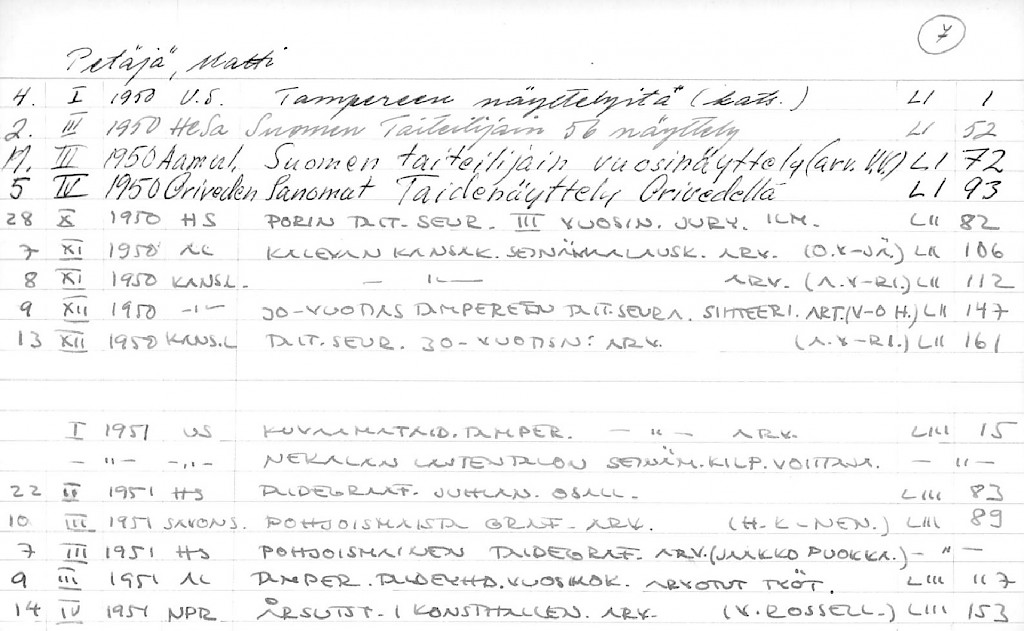 7
Petäjä, Matti
4. I 1950 U.S. Tampereen näyttelyitä (kats.) LI 1
2. III 1950 HeSa Suomen Taiteilijain 56 näyttely LI 52
17. III 1950 Aamul. Suomen taiteilijain vuosinäyttely (arv. V.V.) LI 72
5 IV 1950 Oriveden Sanomat Taidenäyttely Orivedellä LI 93
28 X 1950 HS PORIN TAIT. SEUR. III VUOSIN. JURY. ILM. LII 82
7 XI 1950 AL KALEVAN KANSAK. SEINÄMAALAUSK. ARV. (O.V-JÄ.) LII 106
8 XI 1950 KANS.L. — " — ARV. (A.V-RI.) LII 112
9 XII 1950 -"- 30-VUOTIAS TAMPEREEN TAIT.SEURA. SIHTEERI. ART.(V-O H.) LII 147
13 XII 1950 KANS.L TAIT. SEUR. 30-VUOTISN: ARV. (A.V-RI.) LII 161
I 1951 US KUVAAMATAID. TAMPER. — " — ARV. LIII 15
— " — — " — NEKALAN LASTENTALON SEINÄM. KILP. VOITTAJA. — " —
22 II 1951 HS TAIDEGRAAF. JUHLAN. OSALL. LIII 83
10 III 1951 SAVON S. POHJOISMAISTA GRAF. ARV. (H-K-NEN.) LIII 89
7 III 1951 HS POHJOISMAINEN TAIDEGRAF. ARV. (JAAKKO PUOKKA.) — " —
9 III 1951 AL TAMPER. TAIDEYHD. VUOSIKOK. ARVOTUT TYÖT. LIII 117
14 IV 1951 NPR ÅRSUTST. I KONSTHALLEN. ARV. (V. ROSSELL.) LIII 153